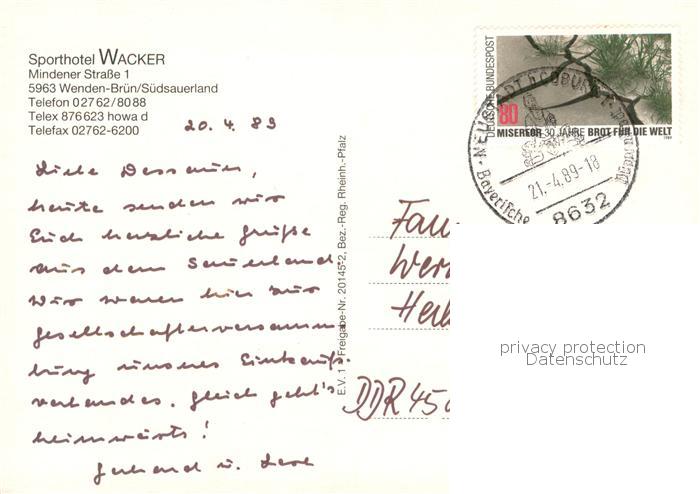 Sporthotel WACKER
Mindener Straße 1
5963 Wenden-Brün/Südsauerland
Telefon 02762/8088
Telex 876623 howa d
Telefax 02762-6200
20.4.89
Liebe Dessauer,
heute senden wir
Euch herzliche Grüße
aus dem Sauerland.
Wir waren hier zur
Gesellschafterversamm
lung unseres Einkaufs-
verbandes. Gleich geht's
heimwärts!
Gerhard u.
E.V. 1 Freigabe-Nr. 20145-2, Bez.-Reg. Rheinh.-Pfalz
DEUTSCHE BUNDESPOST
80
MISEREOR · 30 JAHRE BROT FÜR DIE WELT
1989
21.-4.89-18
Bayerische
8632
Fam
Wer
DDR 45
privacy protection
Datenschutz